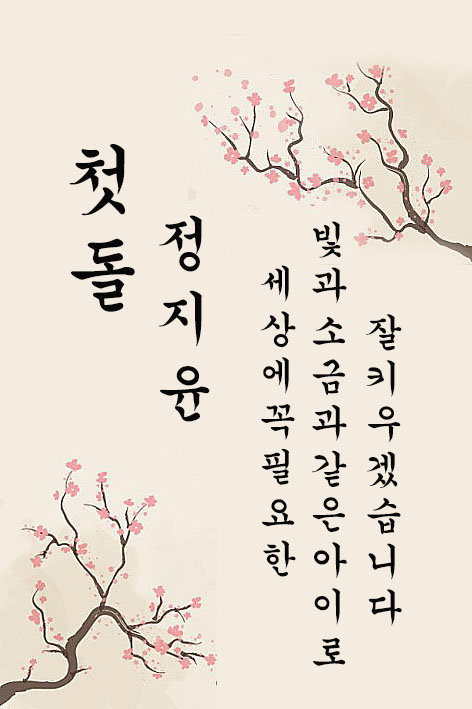 첫돌
정지윤
세상에꼭필요한
빛과소금과같은아이로
잘키우겠습니다